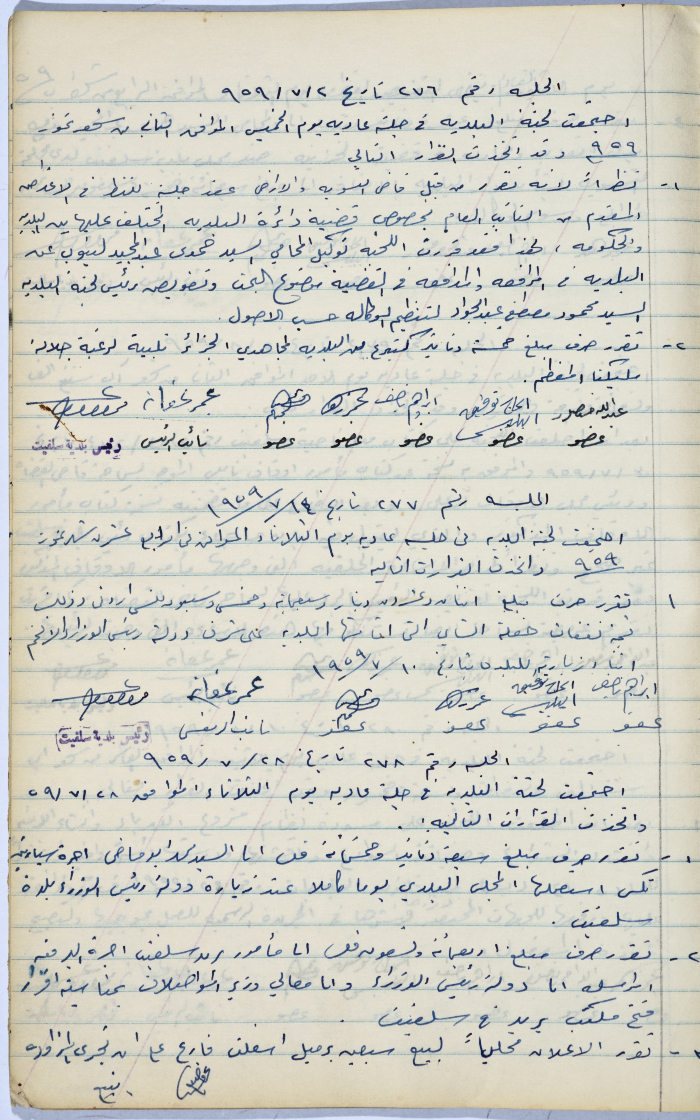 الجلسه رقم ٢٧٦ تاريخ ٩٥٩/٧/٢
اجتمعت لجنة البلديه في جلسة عاديه يوم الخميس الموافق الثاني من شهر تموز
٩٥٩ وقد اتخذت القرار التالي
١- نظراً لانه تقرر من قبل قاضي التسويه والاراضي عقد جلسة للنظر في الاعتراض
المقدم من النائب العام بخصوص قضية دائرة البلديه المختلف عليها بين البلديه
والحكومه ، لهذا فقد قررت اللجنة توكيل المحامي السيد حمدي عبد المجيد لينوب عن
البلديه في المرافعه والمدافعه في القضية موضوع البحث وتفويض رئيس لجنة البلديه
السيد محمود مصطفى عبد الجواد لتنظيم الوكاله حسب الاصول .
٢- تقرر صرف مبلغ خمسة دنانير كتبرع من البلديه لمجاهدي الجزائر تلبية لرغبة جلالة
مليكنا المعظم .
عبدالله منصور الحاج توفيق ابراهيم عمر عفانه
عضو عضو عضو عضو عضو نائب الرئيس رئيس بلدية سلفيت
الجلسه رقم ٢٧٧ تاريخ ١٩٥٩/٧/١٤
اجتمعت لجنة البلديه في جلسه عاديه يوم الثلاثاء الموافق في رابع عشر من شهر تموز
٩٥٩ واتخذت القرارات التاليه
١ تقرر صرف مبلغ اثنان وعشرون دينار وسبعمائه وخمس وسبعون فلس اردني وذلك
قيمة نفقات حفلة الشاي التي اقامتها البلديه على شرف دولة رئيس الوزراء الافخم
اثناء زيارته للبلده بتاريخ ١٩٥٩/٧/١٠
ابراهيم الحاج توفيق عمر عفانه
عضو عضو عضو عضو نائب الرئيس رئيس بلدية سلفيت
الجلسه رقم ٢٧٨ تاريخ ٩٥٩/٧/٢٨
اجتمعت لجنة البلديه في جلسة عاديه يوم الثلاثاء الموافق ٥٩/٧/٢٨
واتخذت القرارات التاليه :.
١- تقرر صرف مبلغ سبعة دنانير وخمسمائة فلس الى السيد اجرة سيارته
تكس استعملها المجلس البلدي يوما كاملا عند زيارة دولة رئيس الوزراء بلدة
سلفيت .
٢- تقرر صرف مبلغ اربعمائة وتسعون فلس الى مأمور بريد سلفيت اجرة البرقيه
المرسله الى دولة رئيس الوزراء والى معالي وزير المواصلات بمناسبة اقرار
فتح مكتب بريد في سلفيت .
٣- تقرر الاعلان محلياً لبيع سبعين برميل اسفلت فارغ على ان تجرى المزاوده
يتبع